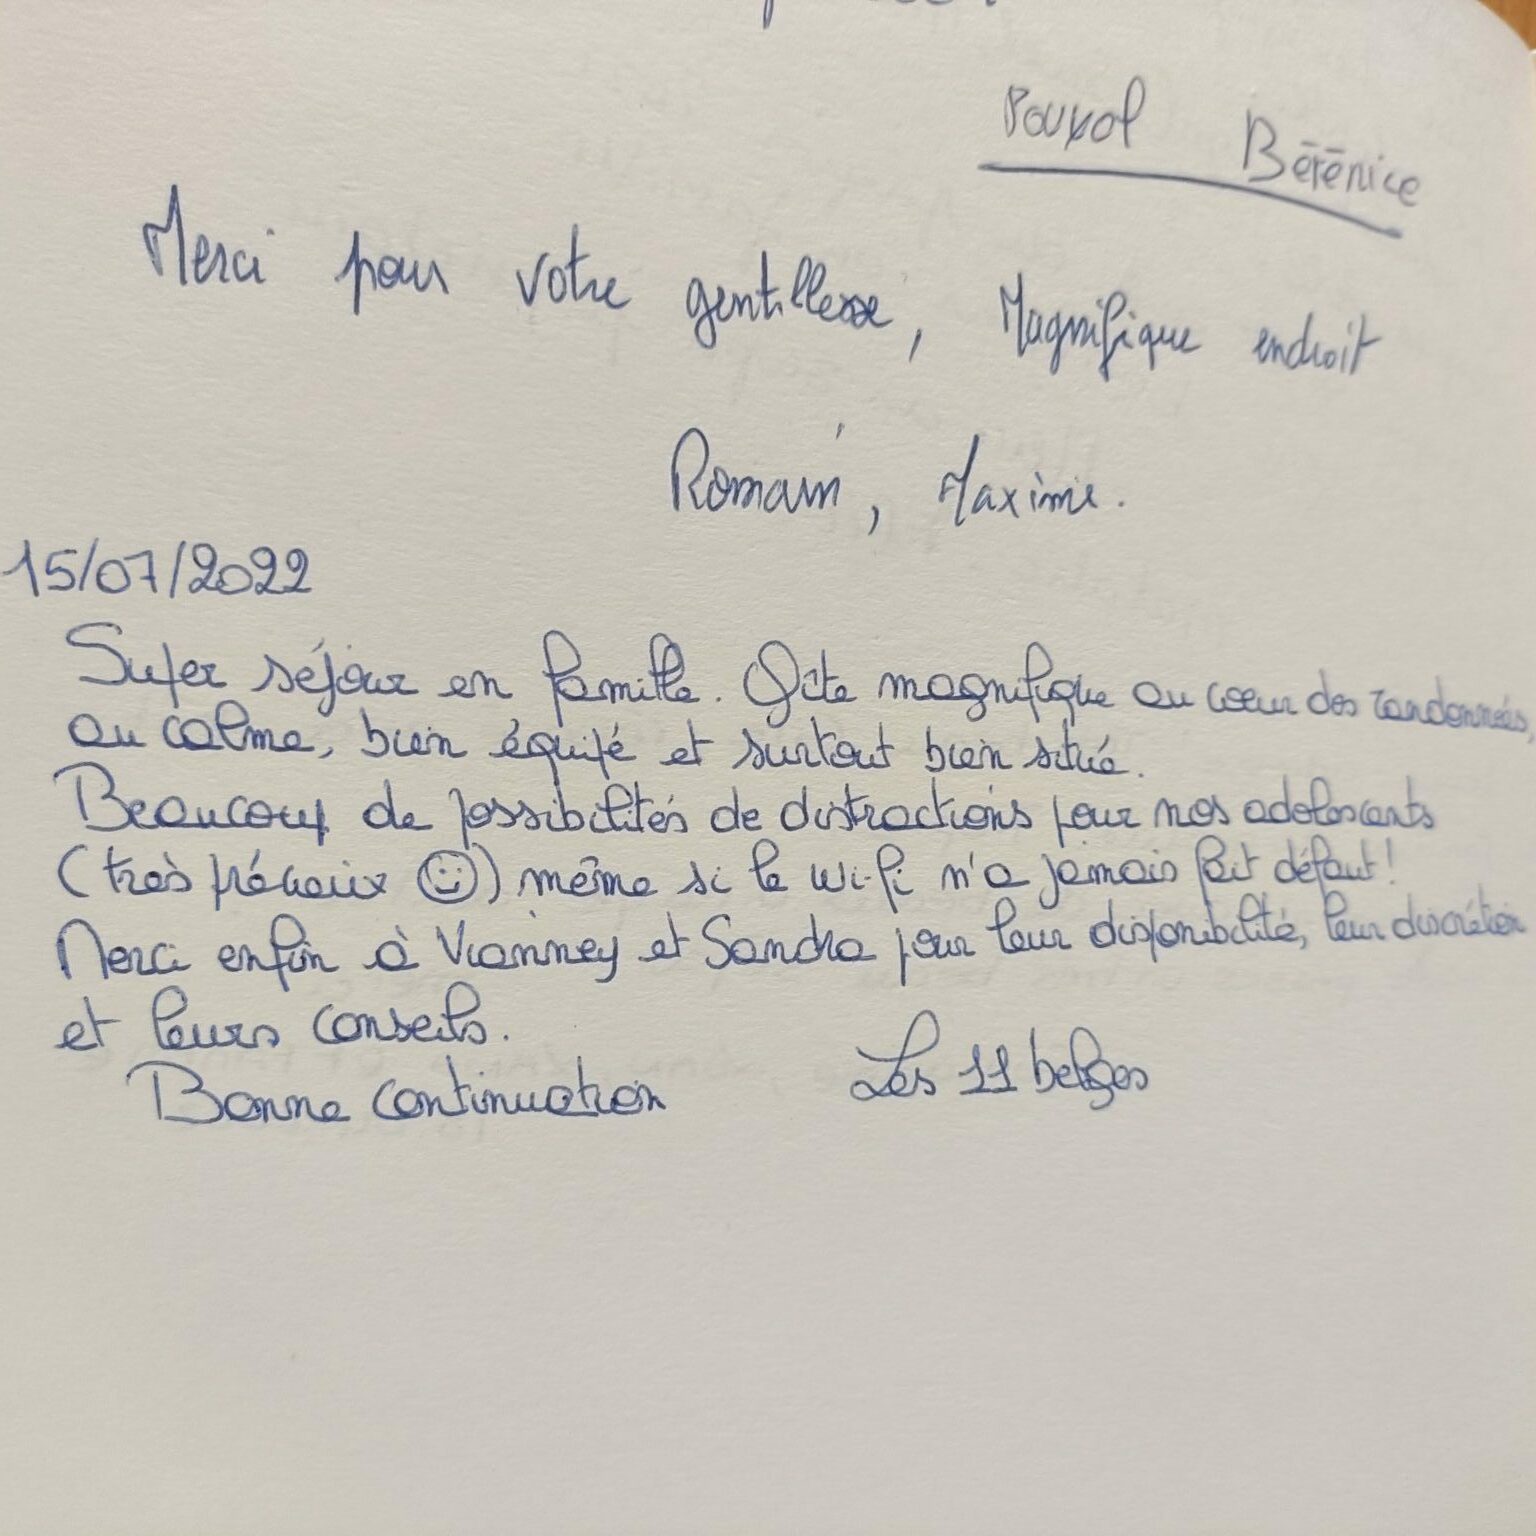 Pouxol Bérénice
Merci pour votre gentillesse, Magnifique endroit
Romain, Maxime.
15/07/2022
Super séjour en famille. Gîte magnifique au coeur des randonnées,
au calme, bien équipé et surtout bien situé.
Beaucoup de possibilités de distractions pour nos adolescents
(très précieux ☺) même si le wi-fi n'a jamais fait défaut!
Merci enfin à Vianney et Sandra pour leur disponibilité, leur discrétion
et leurs conseils.
Bonne continuation Les 11 belges